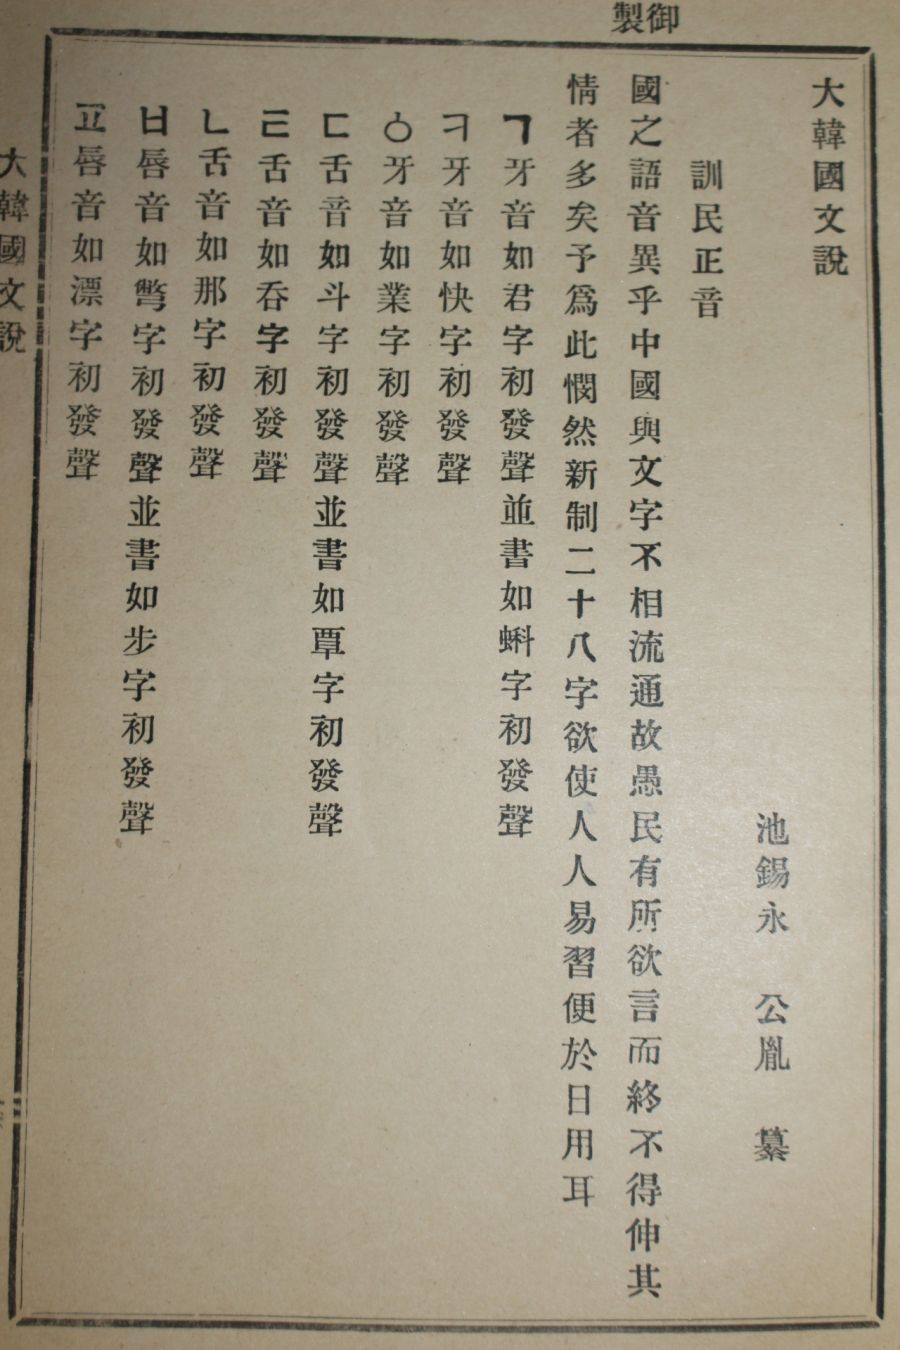 大韓國文說
池錫永 公胤 纂
訓民正音
御製
國之語音異乎中國與文字不相流通故愚民有所欲言而終不得伸其
情者多矣予爲此憫然新制二十八字欲使人人易習便於日用耳
ㄱ牙音如君字初發聲並書如蝌字初發聲
ㅋ牙音如快字初發聲
ㆁ牙音如業字初發聲
ㄷ舌音如斗字初發聲並書如覃字初發聲
ㅌ舌音如呑字初發聲
ㄴ舌音如那字初發聲
ㅂ唇音如彆字初發聲並書如步字初發聲
ㅍ唇音如漂字初發聲
大韓國文說